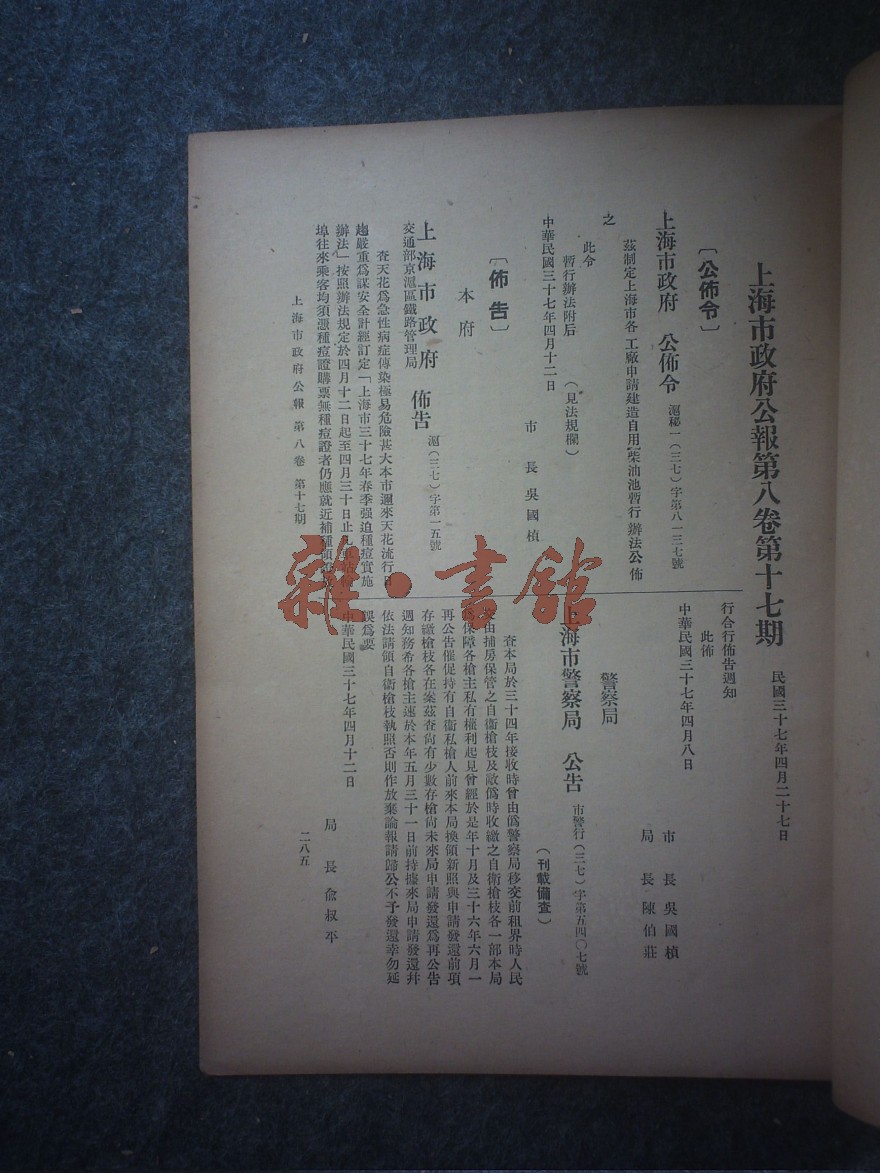 上海市政府公報第八卷第十七期
民國三十七年四月二十七日
〔公佈令〕
上海市政府 公佈令 滬秘一(三七)字第八一三七號
茲制定上海市各工廠申請建造自用柴油池暫行辦法公佈
之
此令
暫行辦法附后 (見法規欄)
中華民國三十七年四月十二日
市長 吳國楨
〔佈告〕
本府
上海市政府 佈告 滬(三七)字第一五號
交通部京滬區鐵路管理局
查天花為急性病症傳染極易危險甚大本市邇來天花流行日
趨嚴重為謀安全計經訂定「上海市三十七年春季强迫種痘實施
辦法」按照辦法規定於四月十二日起至四月三十日止凡
埠往來乘客均須憑種痘證購票無種痘證者仍應就近補種
行合行佈告週知
此佈
中華民國三十七年四月八日
市長 吳國楨
局長 陳伯莊
警察局
上海市警察局 公告 市警行(三七)字第五四〇七號
(刊載備查)
查本局於三十四年接收時曾由僞警察局移交前租界時人民
由捕房保管之自衛槍枝及敵僞時收繳之自衛槍枝各一部本局
為保障各槍主私有權利起見曾經於是年十月及三十六年六月一
再公告催促持有自衛私槍人前來本局換領新照與申請發還前項
存繳槍枝各在案茲查尚有少數存槍尚未來局申請發還為再公告
週知務希各槍主速於本年五月三十一日前持據來局申請發還幷
依法請領自衛槍枝執照否則作放棄論報請歸公不予發還幸勿延
誤為要
中華民國三十七年四月十二日
局長 俞叔平
上海市政府公報 第八卷 第十七期
二八五
雜·書館